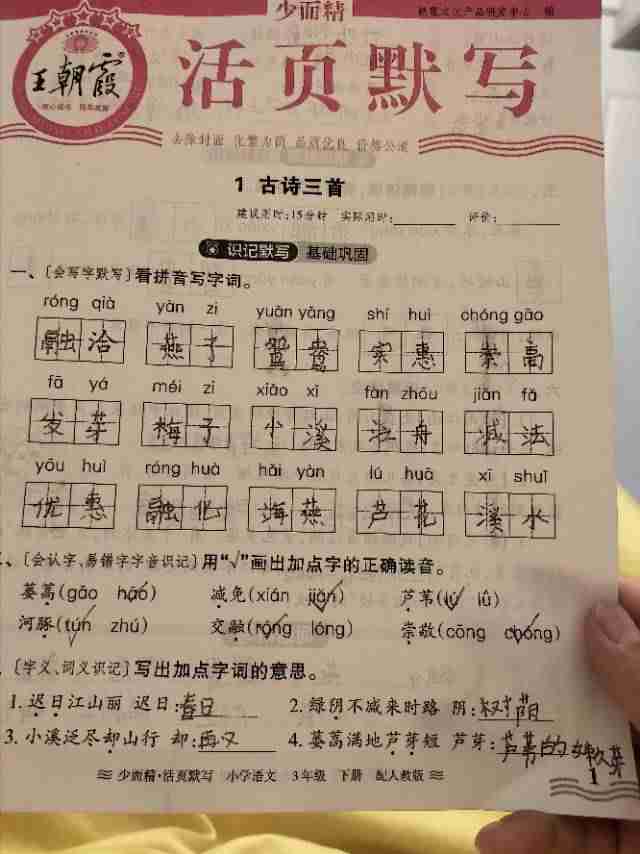 少而精
王朝霞
活页默写
去除封面 化繁为简 品质优良 价格公道
1 古诗三首
建议用时:15分钟 实际用时: 评价:
识记默写 基础巩固
一、〔会写字默写〕看拼音写字词。
róng qià yàn zi yuān yāng shí huì chóng gāo
融洽 燕子 鸳鸯 惠 崇高
fā yá méi zi xiǎo xī fàn zhōu jiǎn fǎ
发芽 梅子 小溪 舟 减法
yōu huì róng huà hǎi yàn lú huā xī shuǐ
优惠 融化 海燕 芦花 溪水
、〔会认字、易错字字音识记〕用“√”画出加点字的正确读音。
蒌蒿(gāo hāo) 减免(xián jiǎn) 芦苇(lú lǘ)
河豚(tún zhú) 交融(róng lóng) 崇敬(cōng chóng)
、〔字义、词义识记〕写出加点字词的意思。
1.迟日江山丽 迟日:春日 2.绿阴不减来时路 阴:树荫
3.小溪泛尽却山行 却:再又 4.蒌蒿满地芦芽短 芦芽:芦苇的嫩芽
少而精·活页默写 小学语文 3年级 下册 配人教版
1